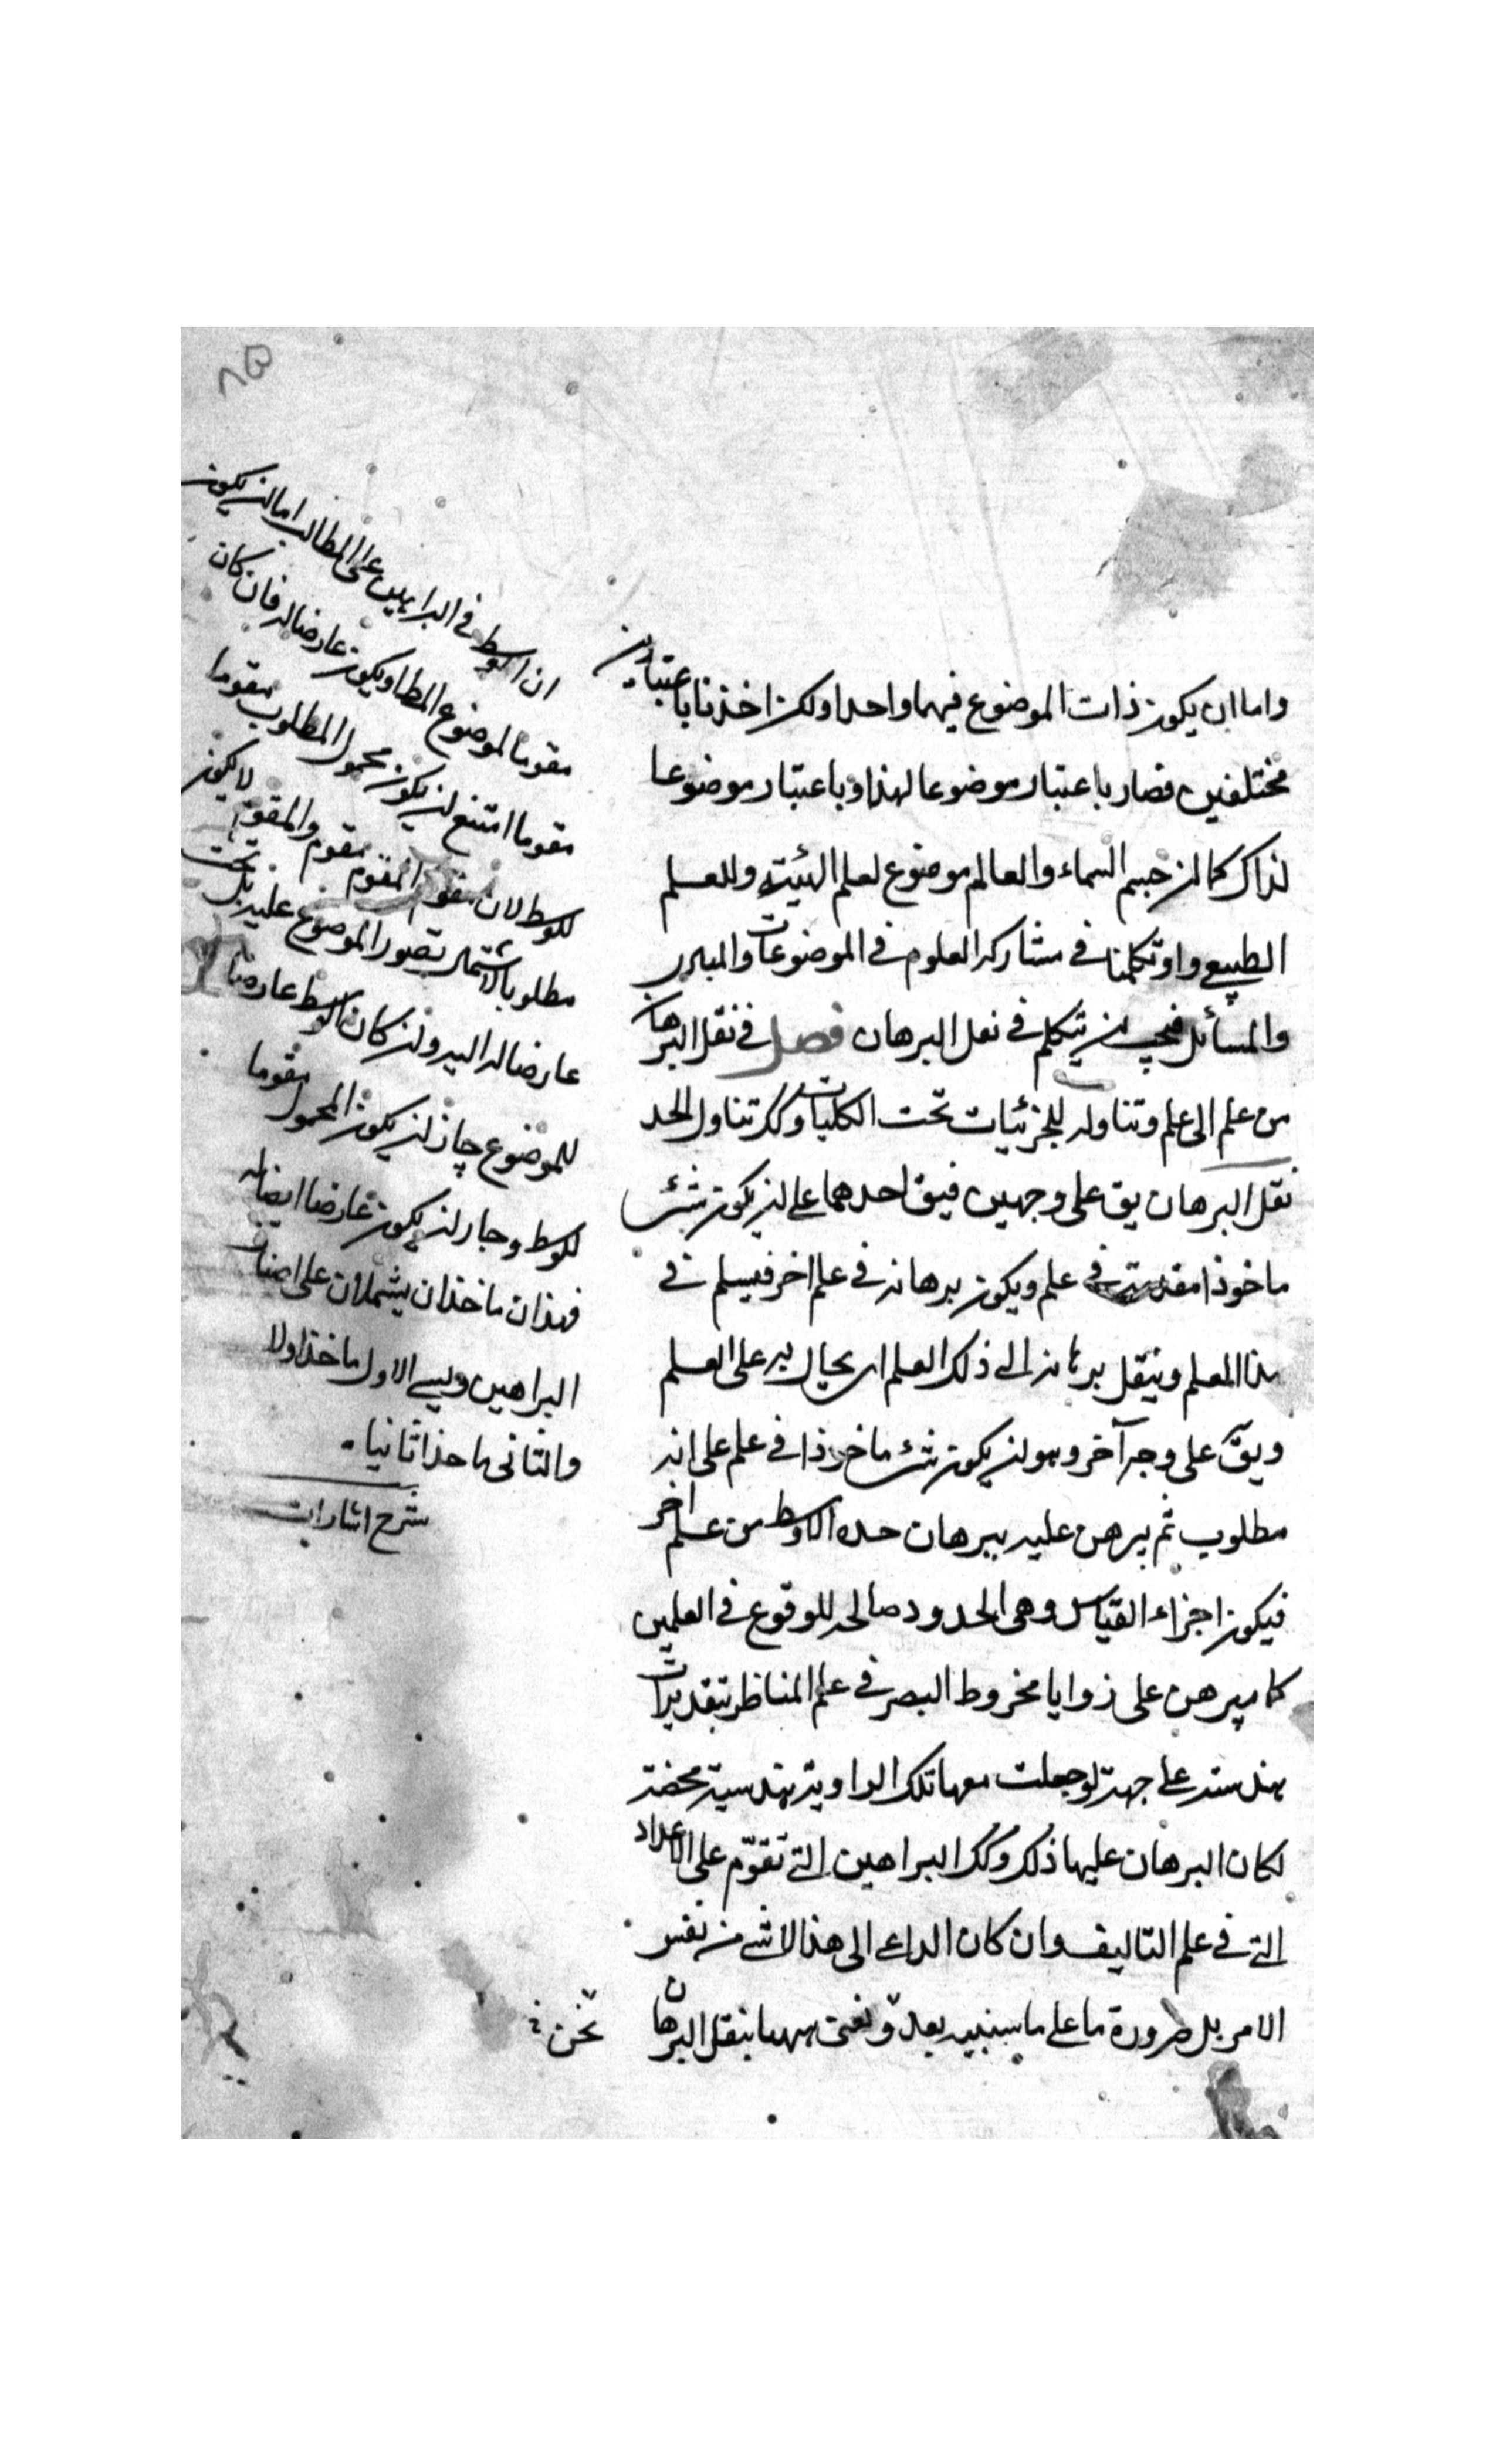 واما ان يكون ذات الموضوع فيهما واحدا ولكن اخذنا باعتبارين
مختلفين فصار باعتبار موضوعا لهذا وباعتبار موضوعا
لذاك كما ان جسم السماء والعالم موضوع لعلم الهيئة وللعلم
الطبيعي واذ تكلمنا في مشاركة العلوم في الموضوعات والمبادى
والمسائل فيجب ان يتكلم في نقل البرهان فصل في نقل البرهان
من علم الى علم وتناوله للجزئيات تحت الكليات وكك تناول الحد
نقل البرهان يق على وجهين فيق احدهما على ان يكون شئ
ماخوذا مقدمة في علم ويكون برهانه في علم اخر فيسلم في
هذا العلم وينقل برهانه الى ذلك العلم اى يحال به على العلم
ويق على وجه آخر وهو ان يكون شئ ماخوذا في علم على انه
مطلوب ثم يبرهن عليه ببرهان حده الاوسط من علم اخر
فيكون اجزاء القياس وهى الحدود صالحة للوقوع في العلمين
كما يبرهن على زوايا مخروط البصر في علم المناظر بتقديرات
هندسية على جهة لو جعلت معها تلك الزاوية هندسية محضة
لكان البرهان عليها ذلك وكك البراهين التي تقوم على الاعداد
التي في علم التاليف وان كان الداعي الى هذا لا شئ من نفس
الامر بل ضرورة ما على ما سنبينه بعد ونعنى ههنا بنقل البرهان
نحن
ان الوسط في البراهين على المطالب اما ان يكون
مقوما لموضوع المط او يكون عارضا له فان كان
مقوما امتنع ان يكون محمول المطلوب مقوما
للوسط لان مقوم المقوم مقوم والمقوم لا يكون
مطلوبا لاشتمال تصور الموضوع عليه بل تحت
عارضا له البتة وان كان الوسط عارضا
للموضوع جاز ان يكون المحمول مقوما
للوسط وجاز ان يكون عارضا ايضا له
فهذان ماخذان يشملان على اصناف
البراهين ويسمى الاول ماخذا اولا
والثانى ماخذا ثانيا
شرح اشارات